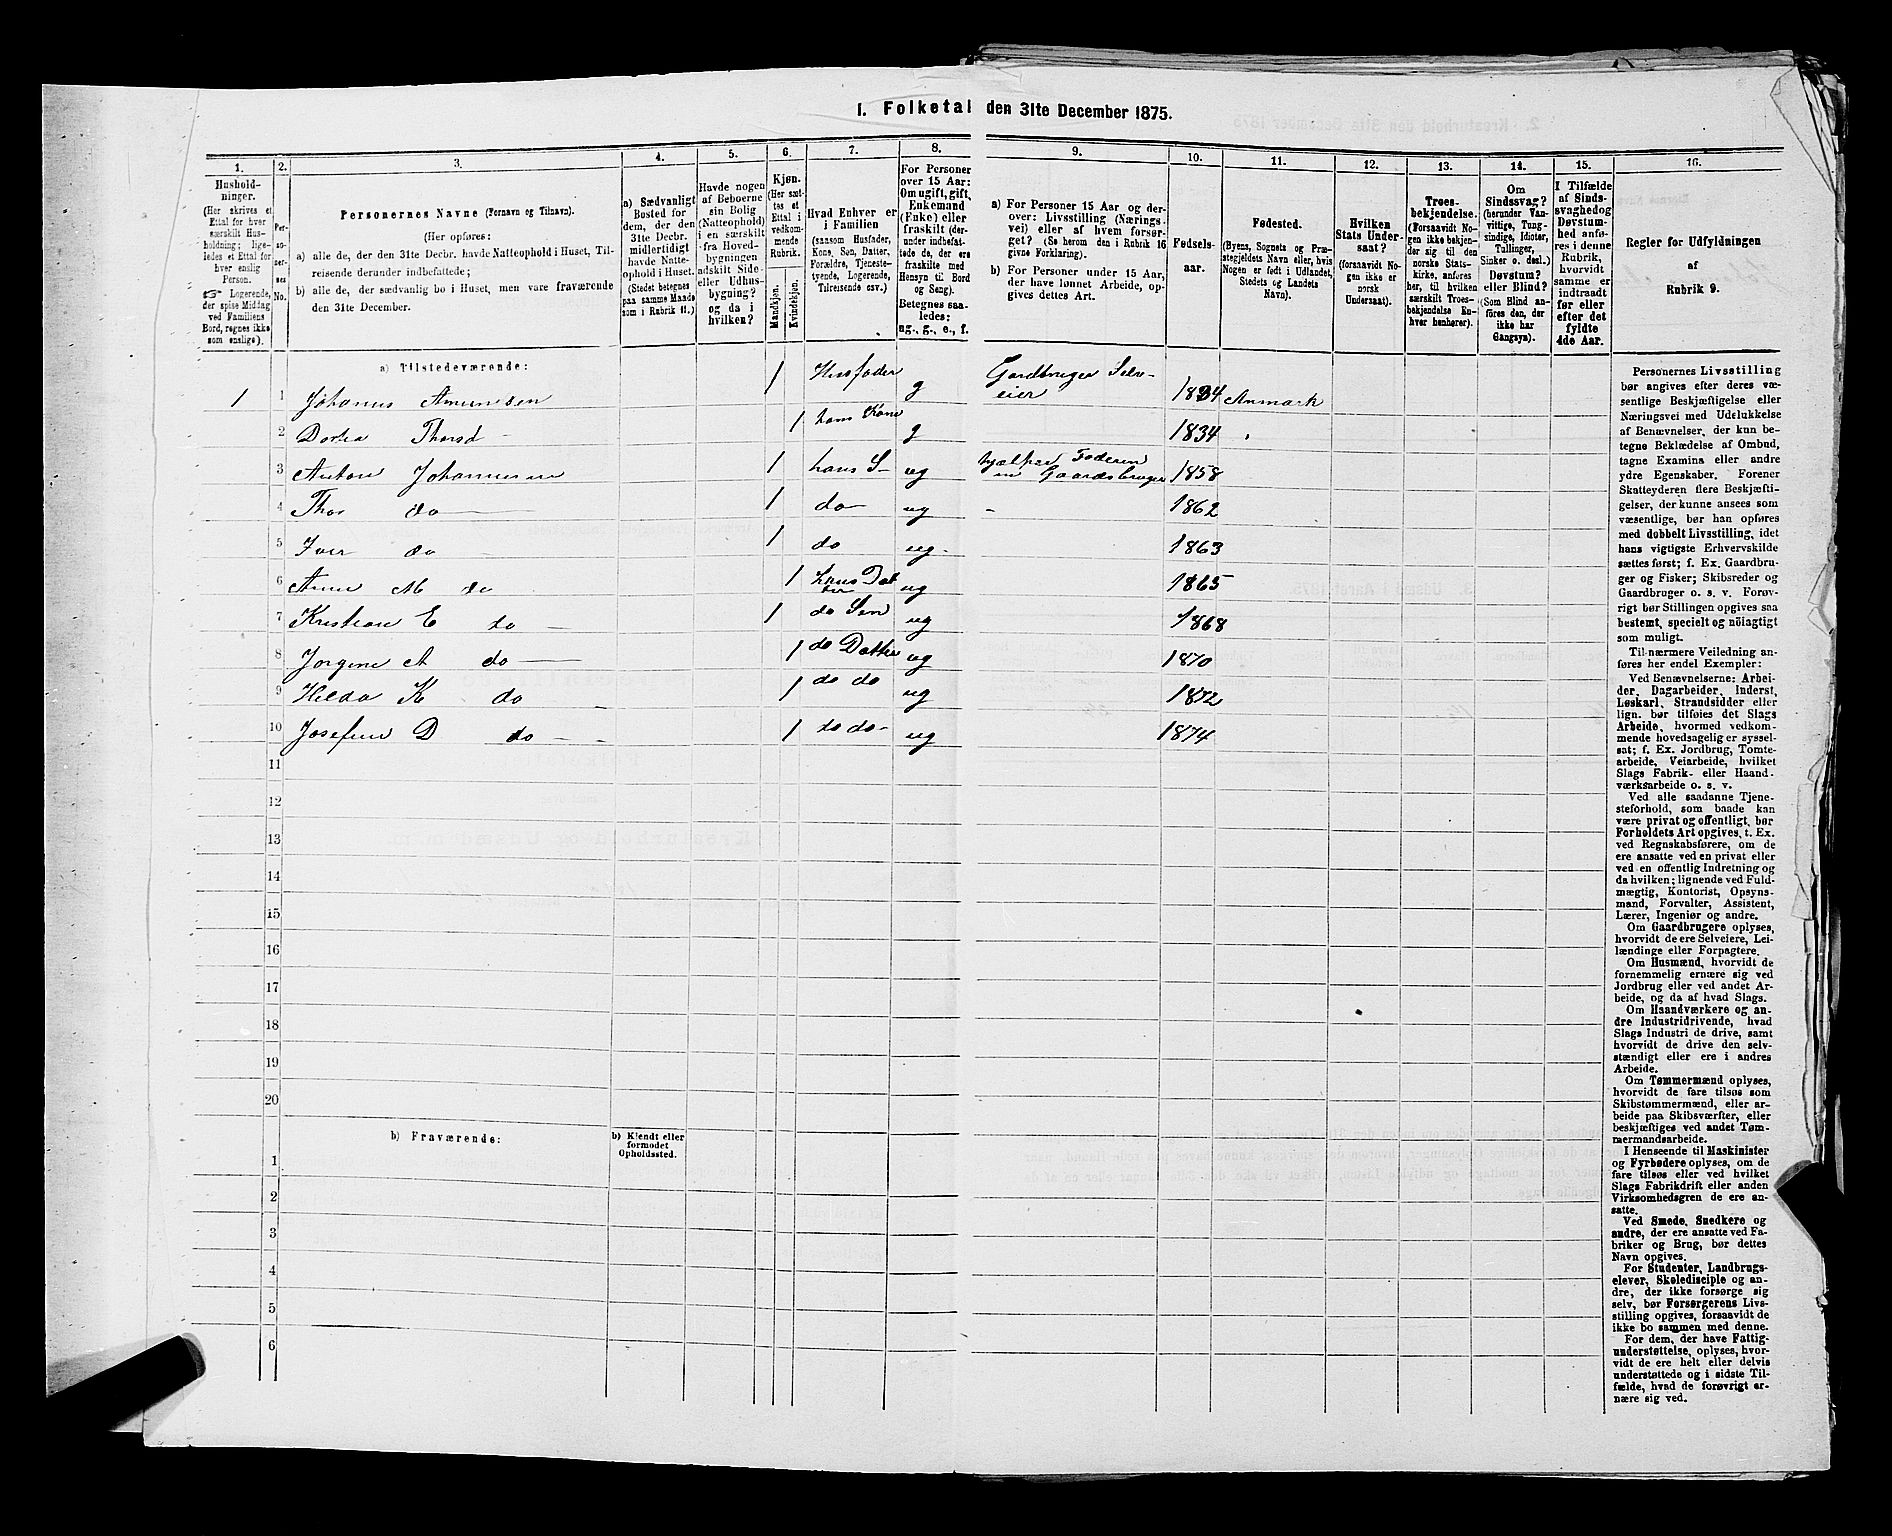 1. Folketal den 31te December 1875.
1.
2.
3.
4.
5.
6.
7.
8.
9.
10.
11.
12.
13.
14.
15.
16.
Hushold-
ninger.
(Her skrives et
Ettal for hver
særskilt Hus-
holdning; lige-
ledes et Ettal for
hver enslig
Person.
☞ Logerende,
der spise Middag
ved Familiens
Bord, regnes ikke
som enslige).
Per-
so-
ner-
nes
No.
Personernes Navne (Fornavn og Tilnavn).
(Her opføres:
a) alle de, der den 31te Decbr. havde Natteophold i Huset, Til-
reisende derunder indbefattede;
b) alle de, der sædvanlig bo i Huset, men vare fraværende
den 31te December.
a) Sædvanligt
Bosted for
dem, der den
31te Decbr.
midlertidigt
havde Natte-
ophold i Huset.
(Stedet betegnes
paa samme Maade
som i Rubrik 11.)
Havde nogen
af Beboerne
sin Bolig
(Natteophold)
i en særskilt
fra Hoved-
bygningen
adskilt Side-
eller Udhus-
bygning?
og da i
hvilken?
Kjøn.
(Her sæt-
tes et
Ettal i
vedkom-
mende
Rubrik.
Mandkjøn.
Kvindekjøn.
Hvad Enhver er
i Familien
(saasom Husfader,
Kone, Søn, Datter,
Forældre, Tjeneste-
tyende, Logerende,
Tilreisende osv.)
For Personer
over 15 Aar:
Om ugift, gift,
Enkemand
(Enke) eller
fraskilt (der-
under indbefat-
tede de, der ere
fraskilte med
Hensyn til Bord
og Seng).
Betegnes saa-
ledes:
ug., g., e., f.
a) For Personer 15 Aar og der-
over: Livsstilling (Nærings-
vei) eller af hvem forsør-
get? (Se herom den i Rubrik 16
givne Forklaring).
b) For Personer under 15 Aar,
der have lønnet Arbeide, op-
gives dettes Art.
Fødsels-
aar.
Fødested.
(Byens, Sognets og Præ-
stegjeldets Navn eller, hvis
Nogen er født i Udlandet,
Stedets og Landets
Navn).
Hvilken
Stats Under-
saat?
(forsaavidt No-
gen ikke er
norsk
Undersaat).
Troes-
bekjendelse.
(Forsaavidt No-
gen ikke bekjen-
der sig til den
norske Stats-
kirke, anføres
her, til hvilken
særskilt Troes-
bekjendelse En-
hver henhører).
Om
Sindssvag?
(herunder Van-
vittige, Tung-
sindige, Idioter,
Tullinger,
Sinker o. desl.)
Døvstum?
eller Blind?
(Som Blind an-
føres den, der
ikke har
Gangsyn).
I Tilfælde
af Sinds-
svaghed og
Døvstum-
hed anfø-
res i denne
Rubrik,
hvorvidt
samme er
indtraadt
før eller
efter det
fyldte
4de Aar.
Regler for Udfyldningen
af
Rubrik 9.
a) Tilstedeværende:
1 1 Johanus Amunsen 1 Husfader g Gardbruger Selv-
eier 1824 Anmark
2 Dortea Thorsd – 1 hans Kone g 1834
3 Anton Johannesen 1 hans S– ug hjælper Faderen
m Gaardsbruger 1858
4 Thor do 1 do ug – 1862
5 Iver do 1 do ug 1863
6 Anne M do 1 hans Dat
ter ug 1865
7 Kristian E do 1 do Søn ug 1868
8 Jorgine A do 1 do Datter ug 1870
9 Hilda K do 1 do do ug 1872
10 Josefine D do 1 do do ug 1874
11
12
13
14
15
16
17
18
19
20
b) Fraværende:
b) Kjendt eller
formodet
Opholdssted.
1
2
3
4
5
6
Personernes Livsstilling
bør angives efter deres væ-
sentlige Beskjæftigelse eller
Næringsvei med Udelukkelse
af Benævnelser, der kun be-
tegne Beklædelse af Ombud,
tagne Examina eller andre
ydre Egenskaber. Forener
Skatteyderen flere Beskjæfti-
gelser, der kunne ansees som
væsentlige, bør han opføres
med dobbelt Livsstilling, idet
hans vigtigste Erhvervskilde
sættes først; f. Ex. Gaardbru-
ger og Fisker; Skibsreder og
Gaardbruger o. s. v. Forøv-
rigt bør Stillingen opgives saa
bestemt, specielt og nöiagtigt
som muligt.
Til nærmere Veiledning an-
føres her endel Exempler:
Ved Benævnelserne: Arbei-
der, Dagarbeider, Inderst,
Løskarl, Strandsidder eller
lign. bør tilføies det Slags
Arbeide, hvormed vedkom-
mende hovedsagelig er syssel-
sat; f. Ex. Jordbrug, Tomte-
arbeide, Veiarbeide, hvilket
Slags Fabrik- eller Haand-
værksarbeide o. s. v.
Ved alle saadanne Tjene-
steforhold, som baade kan
være privat og offentligt, bør
Forholdets Art opgives, t. Ex.
ved Regnskabsførere, om de
ere ansatte ved en privat eller
ved en offentlig Indretning og
da hvilken; lignende ved Fuld-
mægtig, Kontorist, Opsyns-
mand, Forvalter, Assistent,
Lærer, Ingeniør og andre.
Om Gaardbrugere oplyses,
hvorvidt de ere Selveiere, Lei-
lændinge eller Forpagtere.
Om Husmænd, hvorvidt de
fornemmelig ernære sig ved
Jordbrug eller ved andet Ar-
beide, og da af hvad Slags.
Om Haandværkere og an-
dre Industridrivende, hvad
Slags Industri de drive, samt
hvorvidt de drive den selv-
stændigt eller ere i andres
Arbeide.
Om Tømmermænd oplyses,
hvorvidt de fare tilsøs som
Skibstømmermænd, eller ar-
beide paa Skibsværfter, eller
beskjæftiges ved andet Tøm-
mermandsarbeide.
I Henseende til Maskinister
og Fyrbødere oplyses, om de
fare tilsøs eller ved hvilket
Slags Fabrikdrift eller anden
Virksomhedsgren de ere an-
satte.
Ved Smede, Snedkere og
andre, der ere ansatte ved Fa-
briker og Brug, bør dettes
Navn opgives.
For Studenter, Landbrugs-
elever, Skoledisciple og an-
dre, der ikke forsørge sig
selv, bør Forsørgerens Livs-
stilling opgives, forsaavidt de
ikke bo sammen med denne.
For dem, der have Fattig-
understøttelse, oplyses, hvor-
vidt de ere helt eller delvis
understøttede og i sidste Til-
fælde, hvad de forøvrigt er-
nære sig ved.